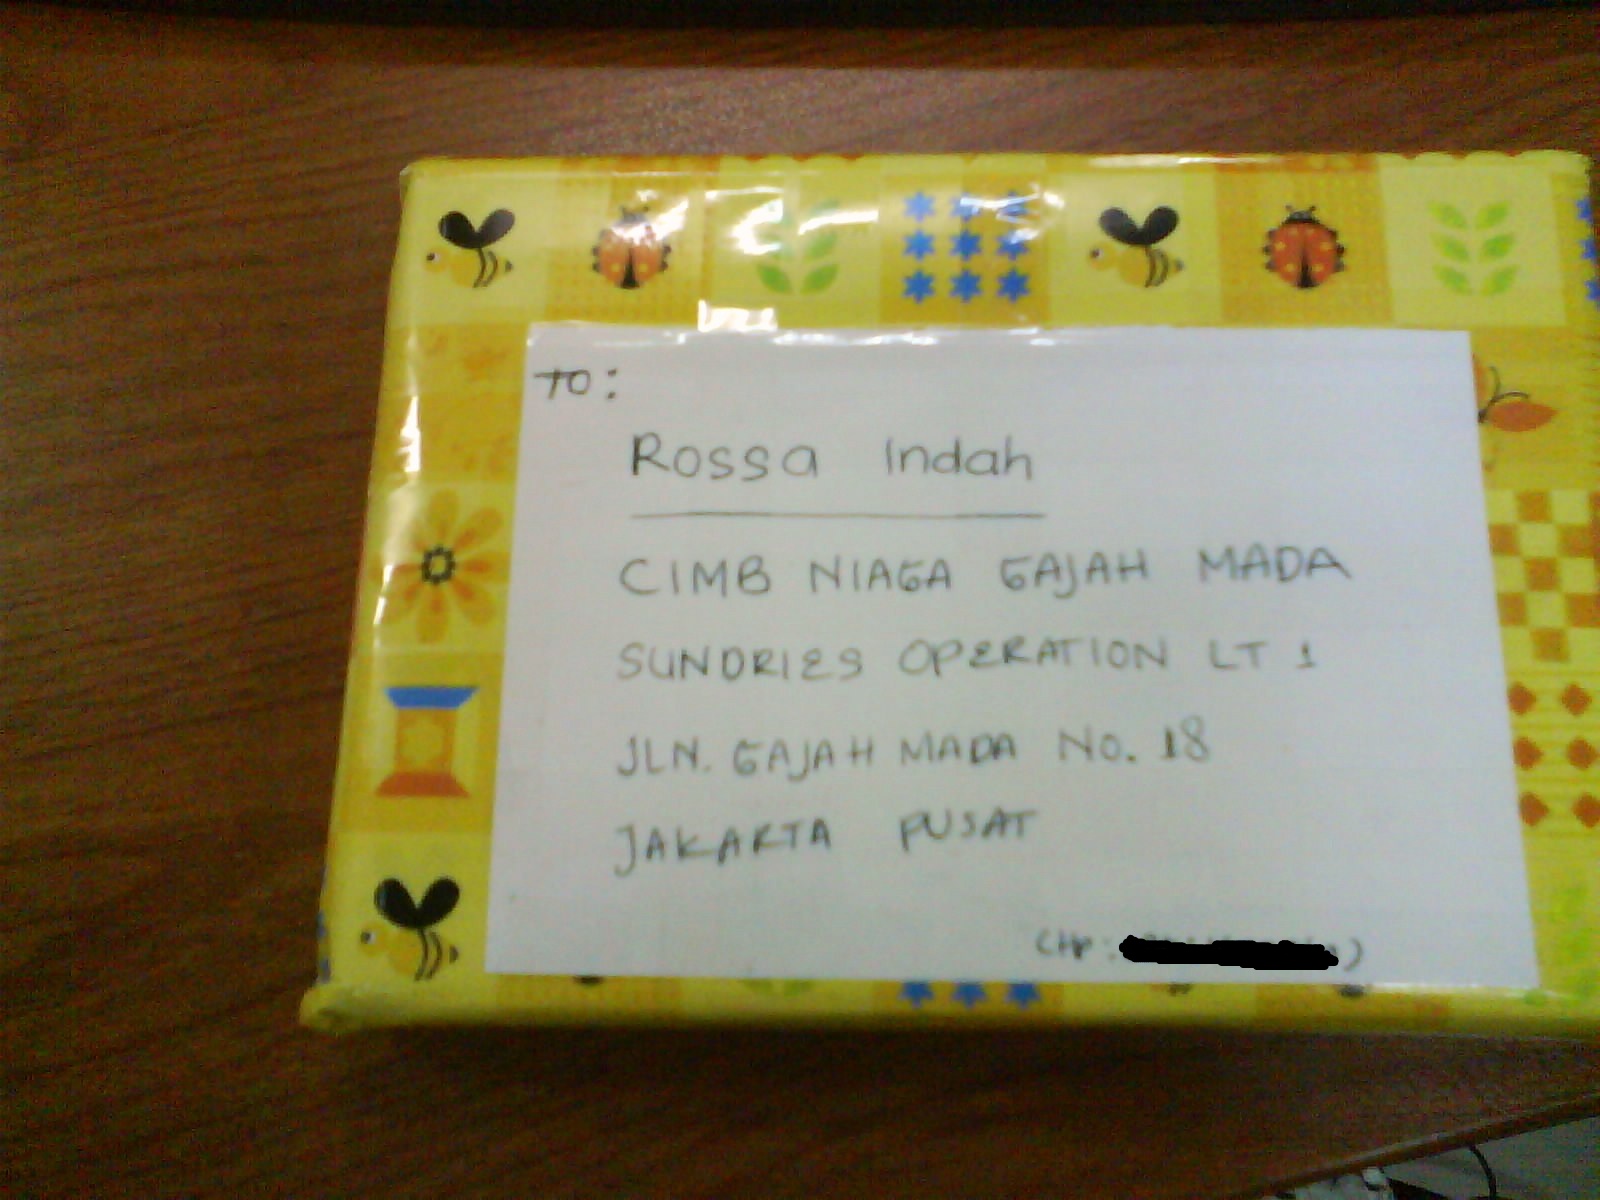 TO:
Rossa Indah
CIMB NIAGA GAJAH MADA
SUNDRIES OPERATION LT 1
JLN. GAJAH MADA No. 18
JAKARTA PUSAT
(HP: